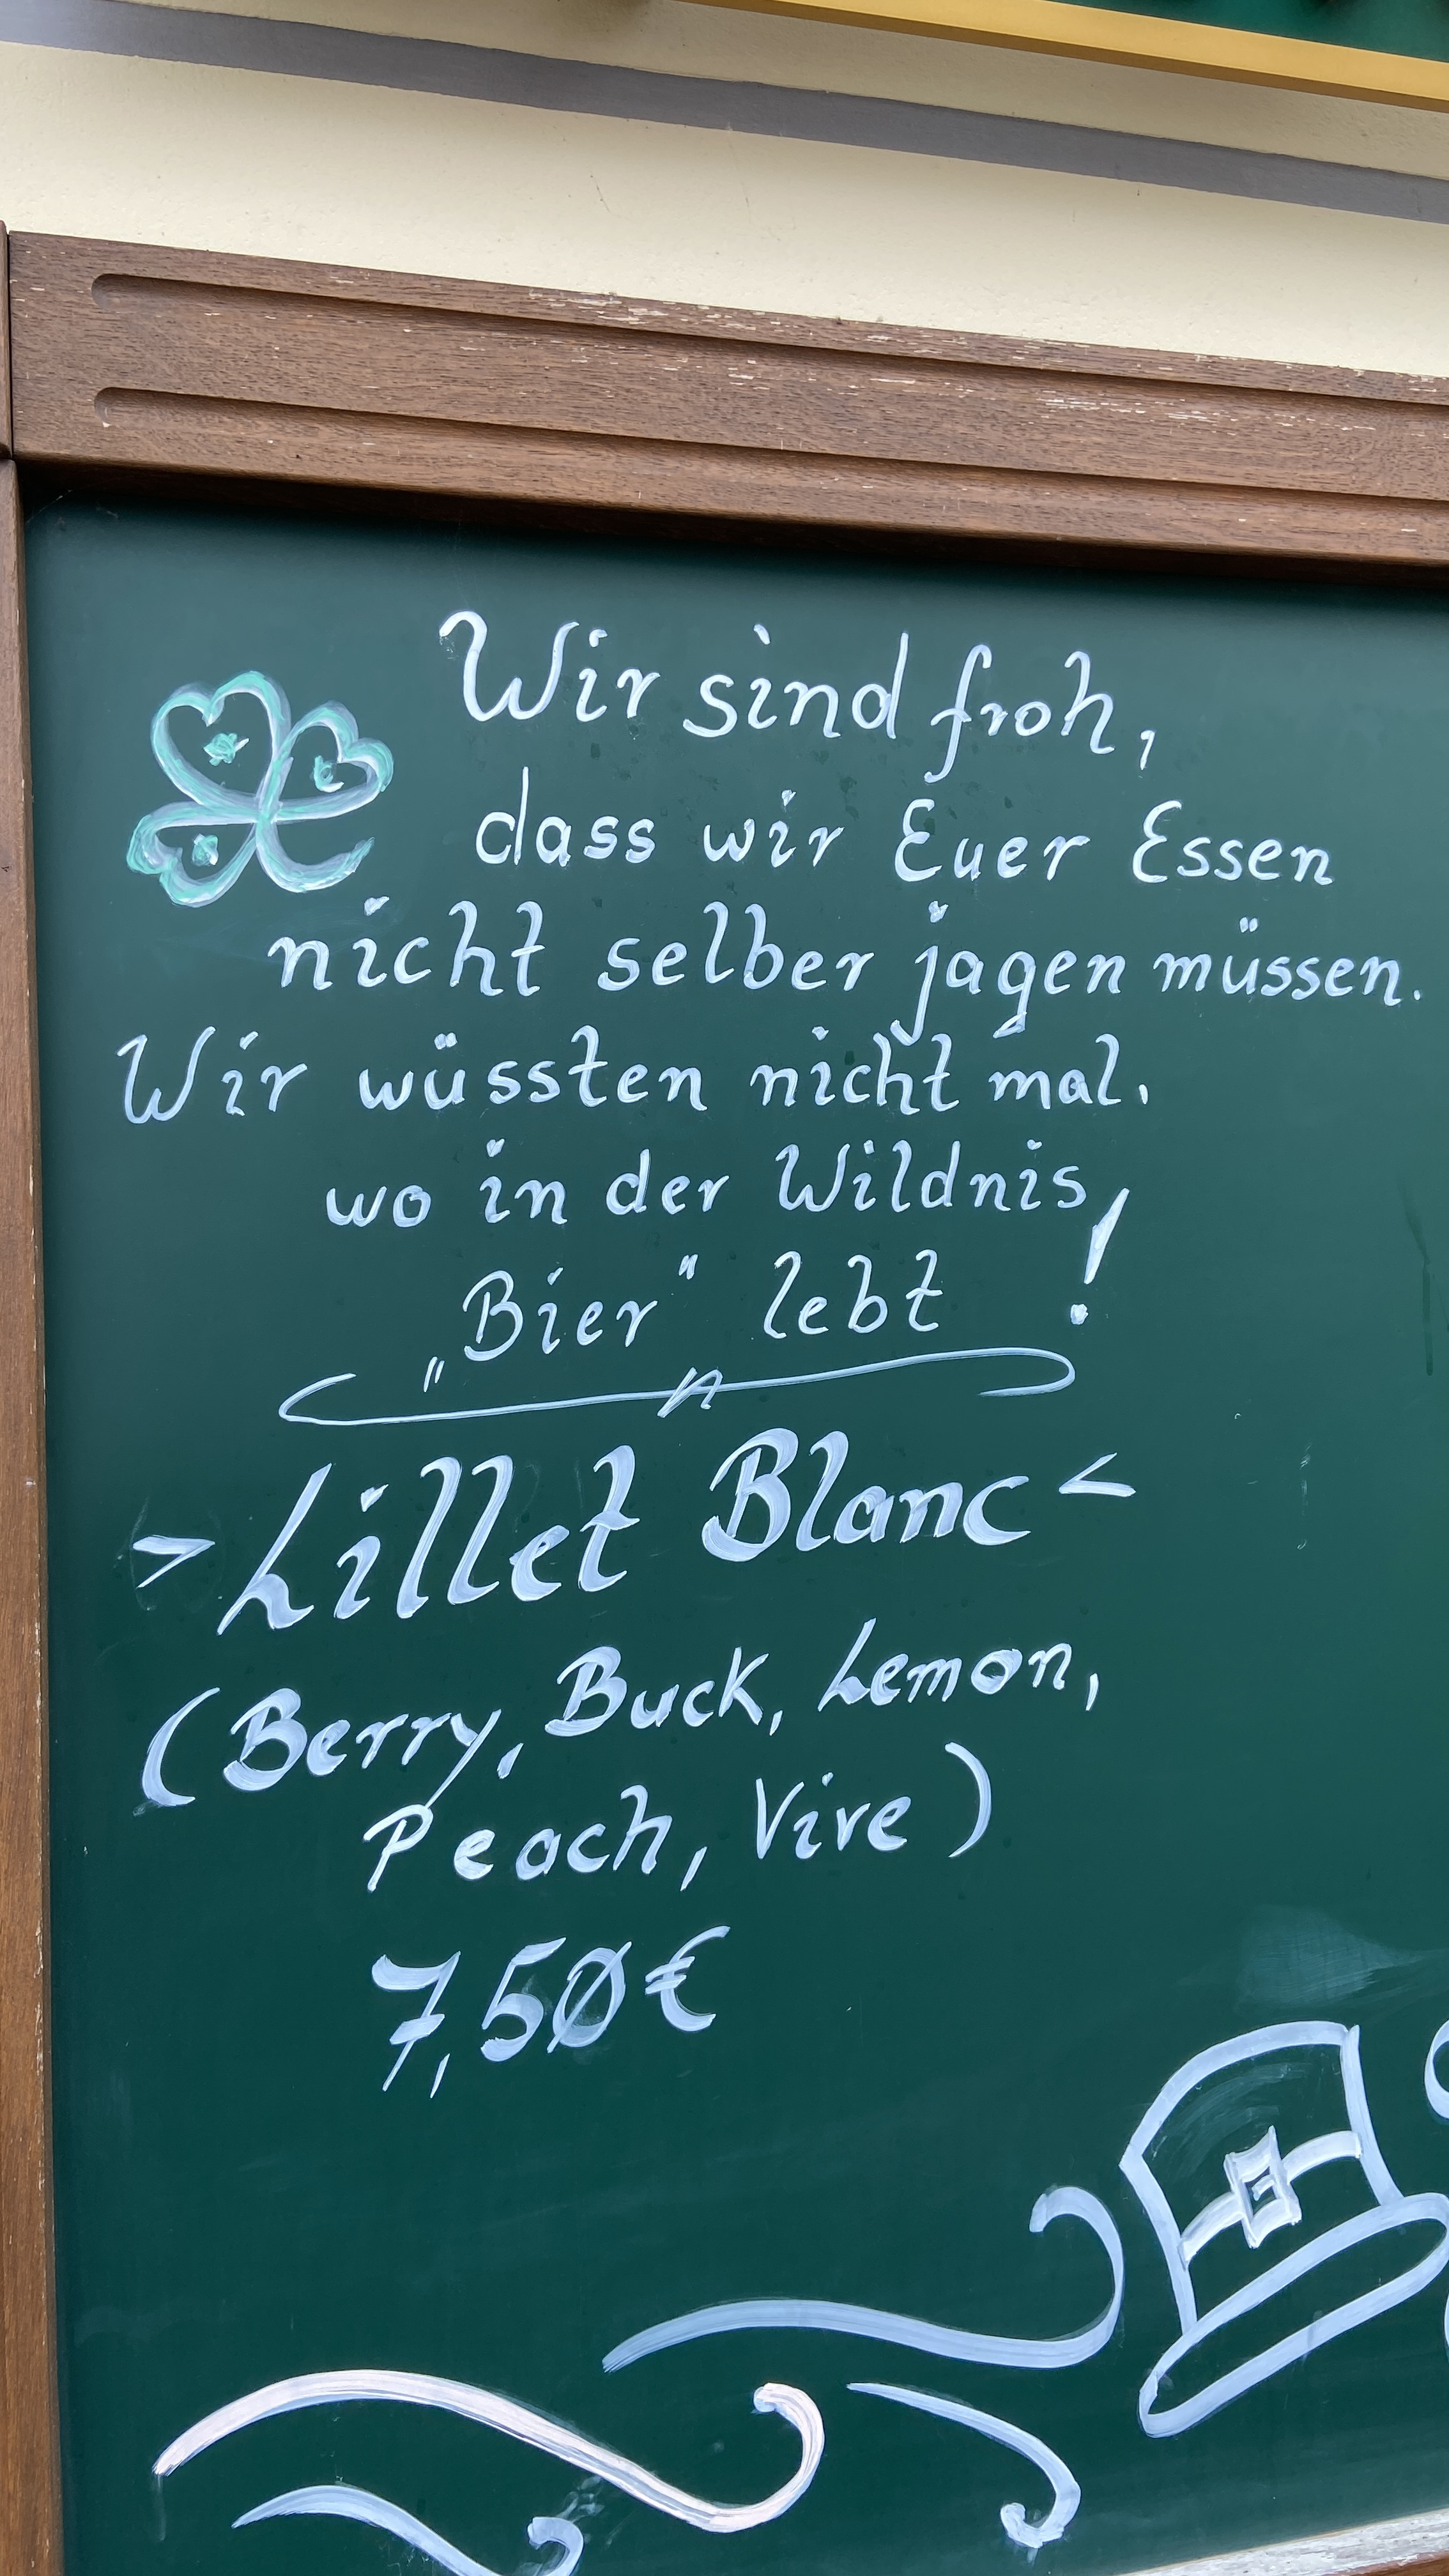 Wir sind froh,
dass wir Euer Essen
nicht selber jagen müssen.
Wir wüssten nicht mal.
wo in der Wildnis
„Bier" lebt !
>Lillet Blanc<
(Berry, Buck, Lemon,
Peach, Vive)
7,50€